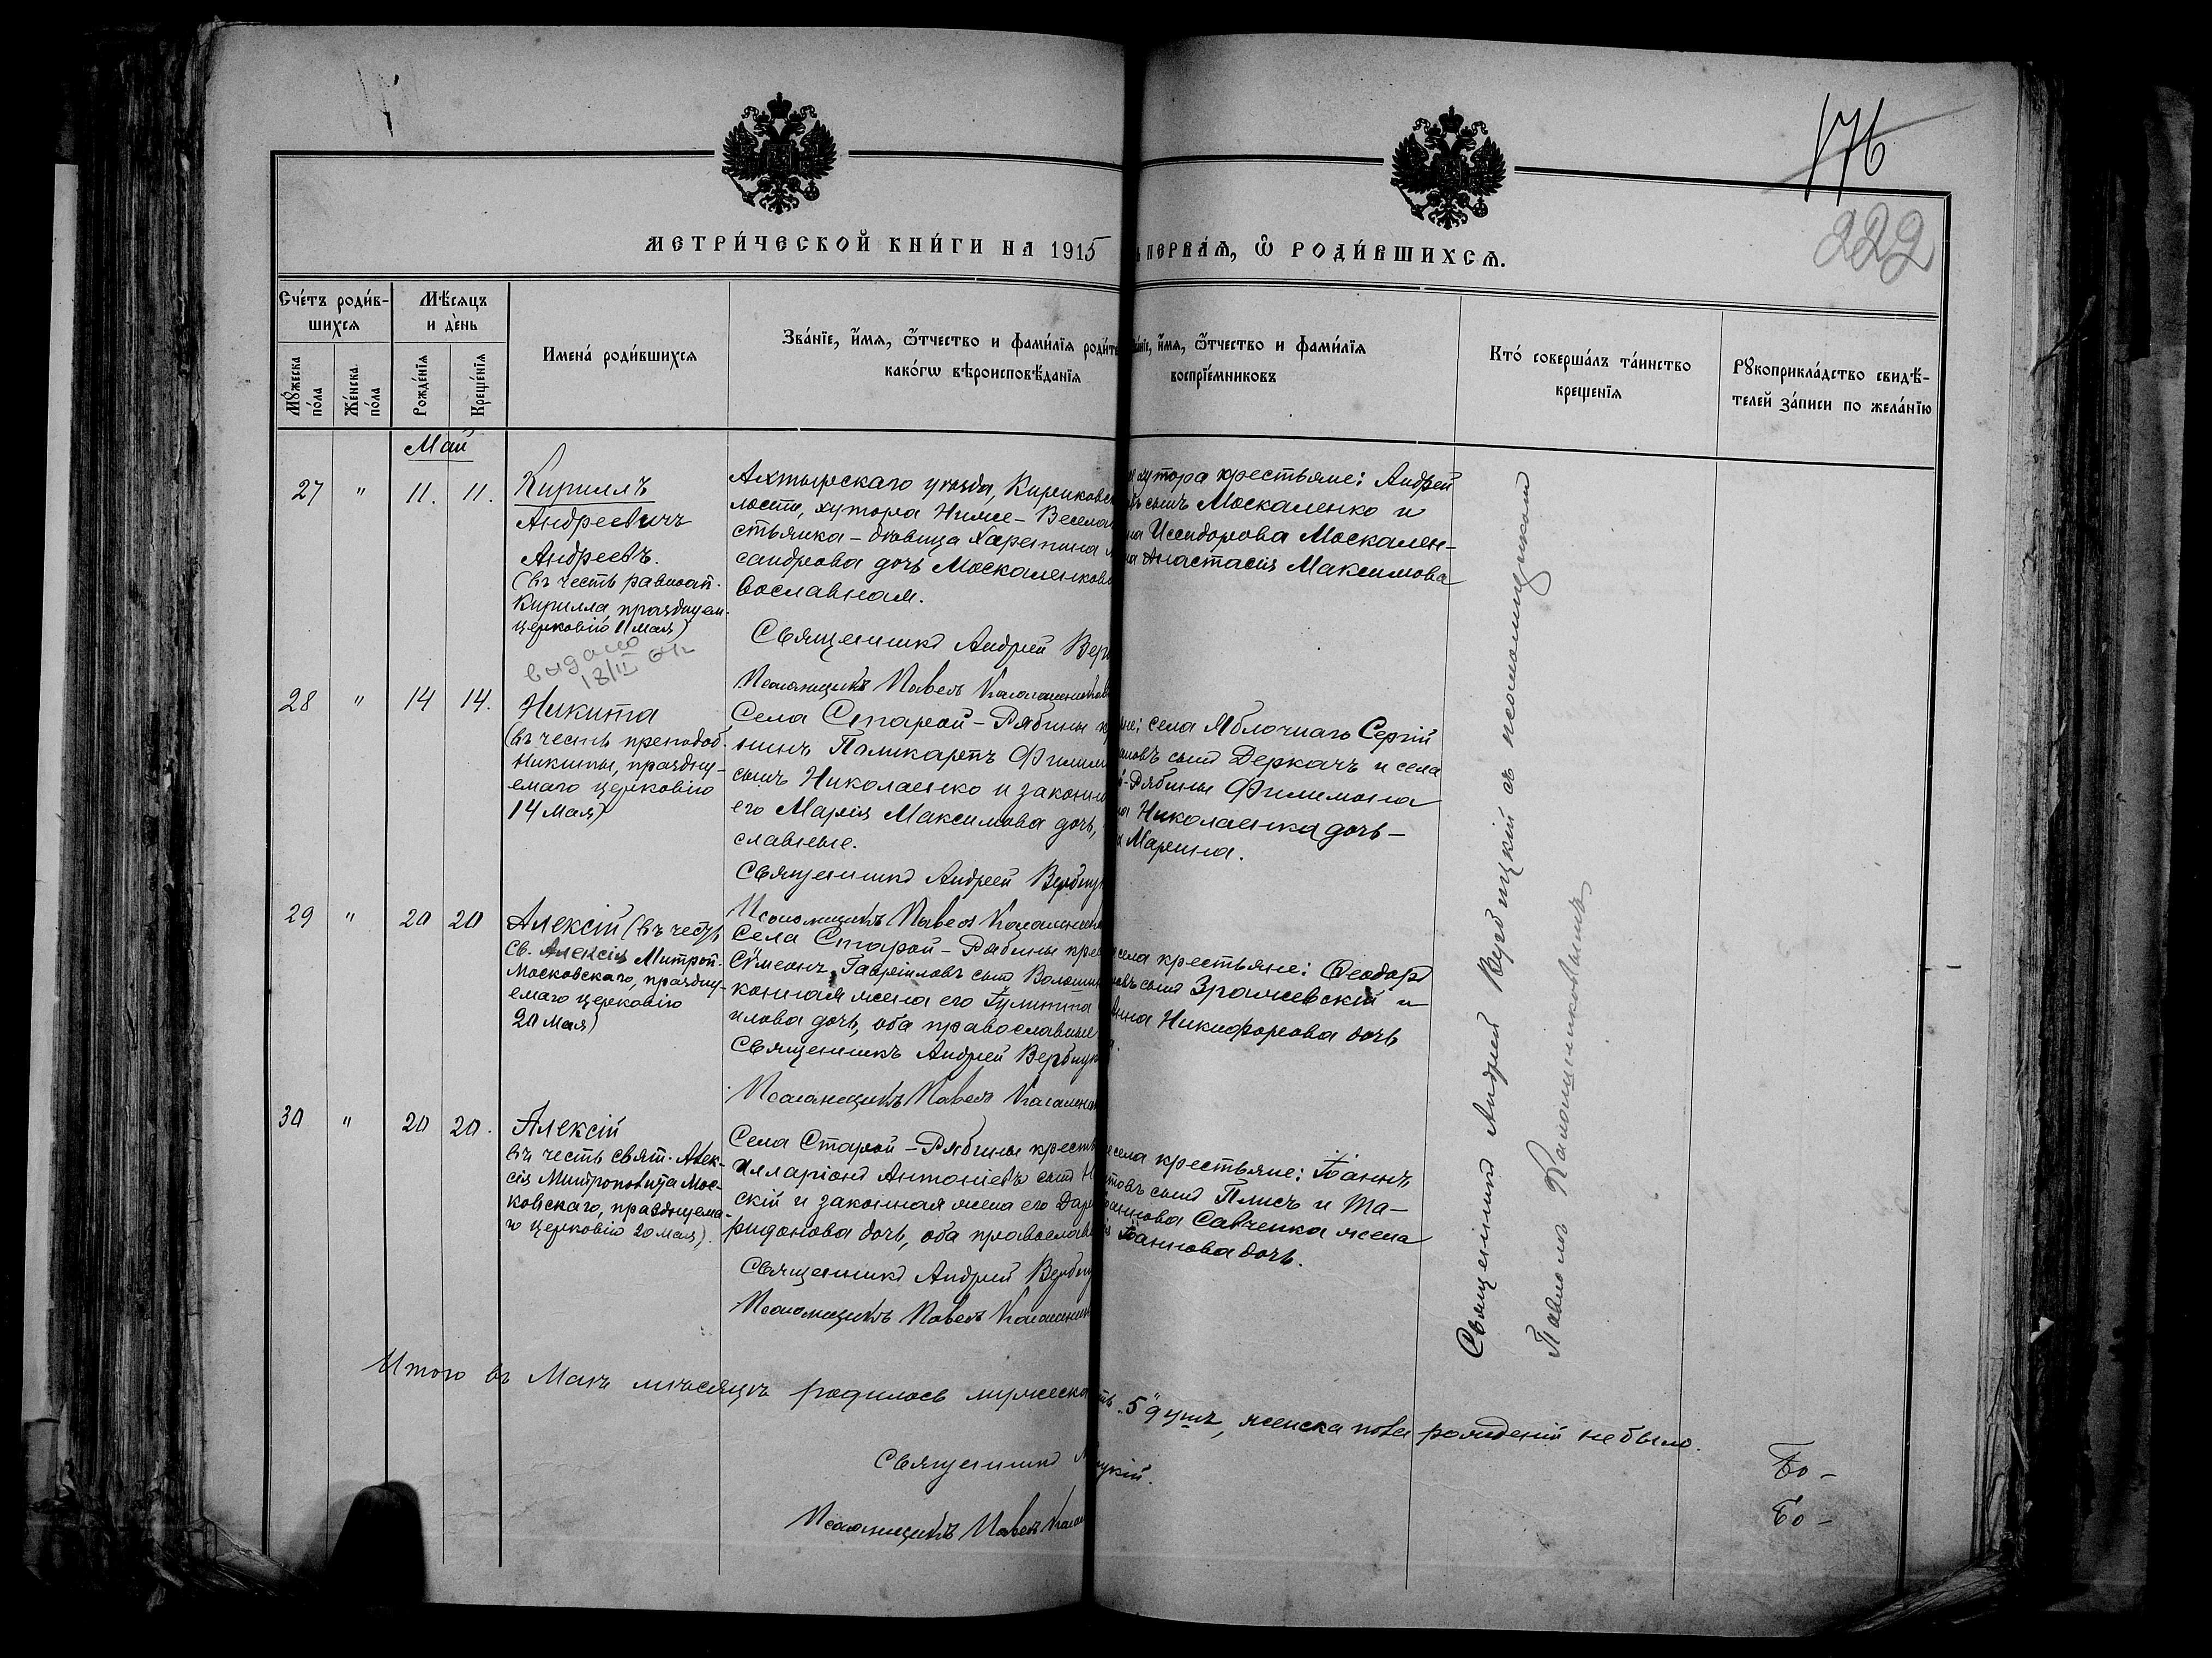 176
222
МЕТРИ́ЧЕСКОЙ КНИ́ГИ НА 1915
ПЕРВА́Я, Ѡ РОДИ́ВШИХСЯ.
Сче́тъ роди́в-
шихся
Му́жеска
по́ла
Же́нска
по́ла
Мѣ́сяцъ
и де́нь
Рожде́нїя
Креще́нїя
Имена́ роди́вшихся
Зва́нїе, и́мя, ѿтчество и фами́лїя роди́те
како́гѡ вѣроисповѣ́данїя
и́мя, ѿтчество и фами́лїя
воспрїе́мниковъ
Кто́ соверша́лъ та́инство
креще́нїя
Рꙋкоприкла́дство свидѣ́-
телей за́писи по жела́нїю
Май
27 " 11. 11.
Кириллъ
Андреевичъ
Андреевъ.
(въ честь равноап.
Кирилла, празднуем.
церковію 11 мая)
выдано
18/II
Ахтырскаго уѣзда, Кириковск
лости, хутора Ниже-Весела
стьянка-дѣвица Харитина
сандрова дочь Москаленкова
вославная.
Священникъ Андрей Верб
Псаломщикъ Павелъ Калашников
хутора крестьяне: Андрей
сынъ Москаленко и
Исидорова Москален-
Анастасія Максимова
28 " 14 14.
Никита
(въ честь преподоб.
Никиты, праздну-
емаго церковію
14 мая)
Села Старой-Рябины кр
нинъ Поликарпъ Филим
сынъ Николаенко и законна
его Марія Максимова дочь,
славные.
Священникъ Андрей Вербиц
Псаломщикъ Павелъ Калашник
села Яблочнаго Сергій
новъ сынъ Деркачъ и села
-Рябины Филимона
Николаенка дочь-
Марина.
29 " 20 20
Алексій (въ честь
св. Алексія Митроп.
Московскаго, праздну-
емаго церковію
20 мая)
Села Старой-Рябины крес
Сѵмеонъ Гавріиловъ сынъ Волошин
конная жена его Іулитта
илова дочь, оба православные
Священникъ Андрей Вербицк
Псаломщикъ Павелъ Калашник
села крестьяне: Ѳеодор
овъ сынъ Зражевскій и
Никифорова дочь
30 " 20 20.
Алексій
въ честь свят. Алек-
сія Митрополита Мос-
ковскаго, празднуема-
го церковію 20 мая).
Села Старой-Рябины кресть
Илларіонъ Антоніевъ сынъ
скій и законная жена его Дар
ридонова дочь, оба православн
Священникъ Андрей Вербиц
Псаломщикъ Павелъ Калашник
села крестьяне: Іоаннъ
товъ сынъ Плисъ и Та-
Савченка жена
Іоаннова дочь.
Священникъ Андрей Вербицкій съ псаломщикомъ
Павломъ Калашниковымъ
Итого въ Маѣ мѣсяцѣ родилось мужеска
"5" душъ, женска пола рожденій небыло.
Священникъ
цкій.
Псаломщикъ Павелъ Калаш